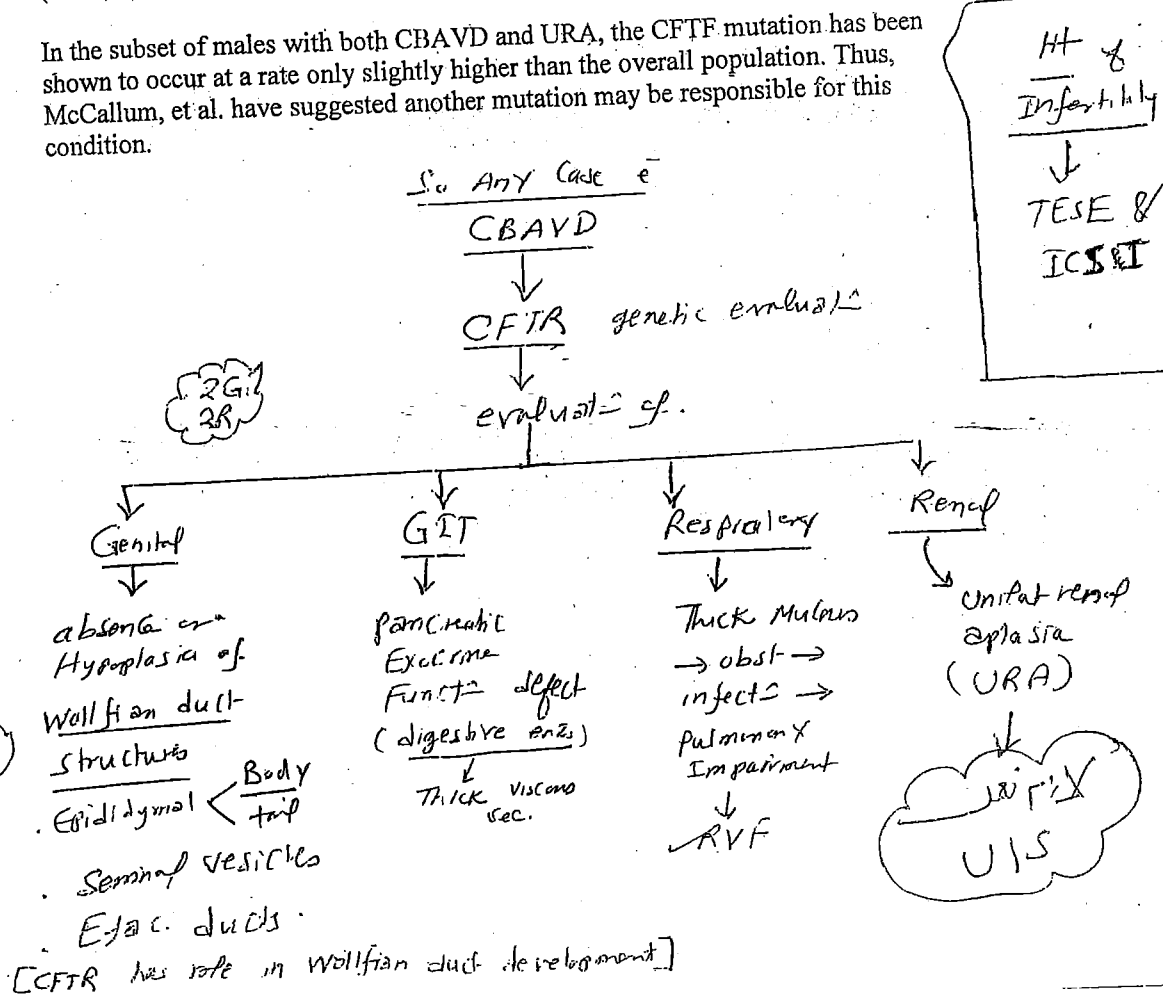 In the subset of males with both CBAVD and URA, the CFTF mutation has been
shown to occur at a rate only slightly higher than the overall population. Thus,
McCallum, et al. have suggested another mutation may be responsible for this
condition.
Htt of
Infertility
TESE &
ICSI
So Any Case ē
CBAVD
CFTR genetic evaluat=
evaluat= of.
2G
2R
Genital
absence or
Hypoplasia of
Wolffian duct
structures
Epididymal < Body
tail
. Seminal vesicles
. Ejac. ducts.
GIT
pancreatic
Exocrine
Funct= defect
(digestive enzs)
Thick viscous
sec.
Respiratory
Thick Mucus
→ obst →
infect= →
Pulmonary
Impairment
RVF
Renal
Unilat renal
aplasia
(URA)
لازم نعمل
U/S
[CFTR has role in Wolffian duct development]